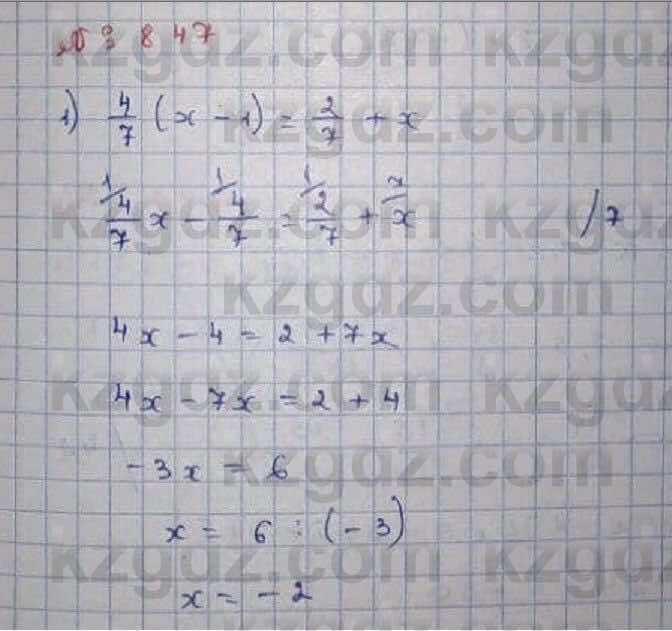 № 3 8 4 7
1) 4/7 (x - 1) = 2/7 + x
1/ 1/ 1/ 7/
4/7 x - 4/7 = 2/7 + x /7
4x - 4 = 2 + 7x
4x - 7x = 2 + 4
-3x = 6
x = 6 : (-3)
x = -2
kzgdz.com